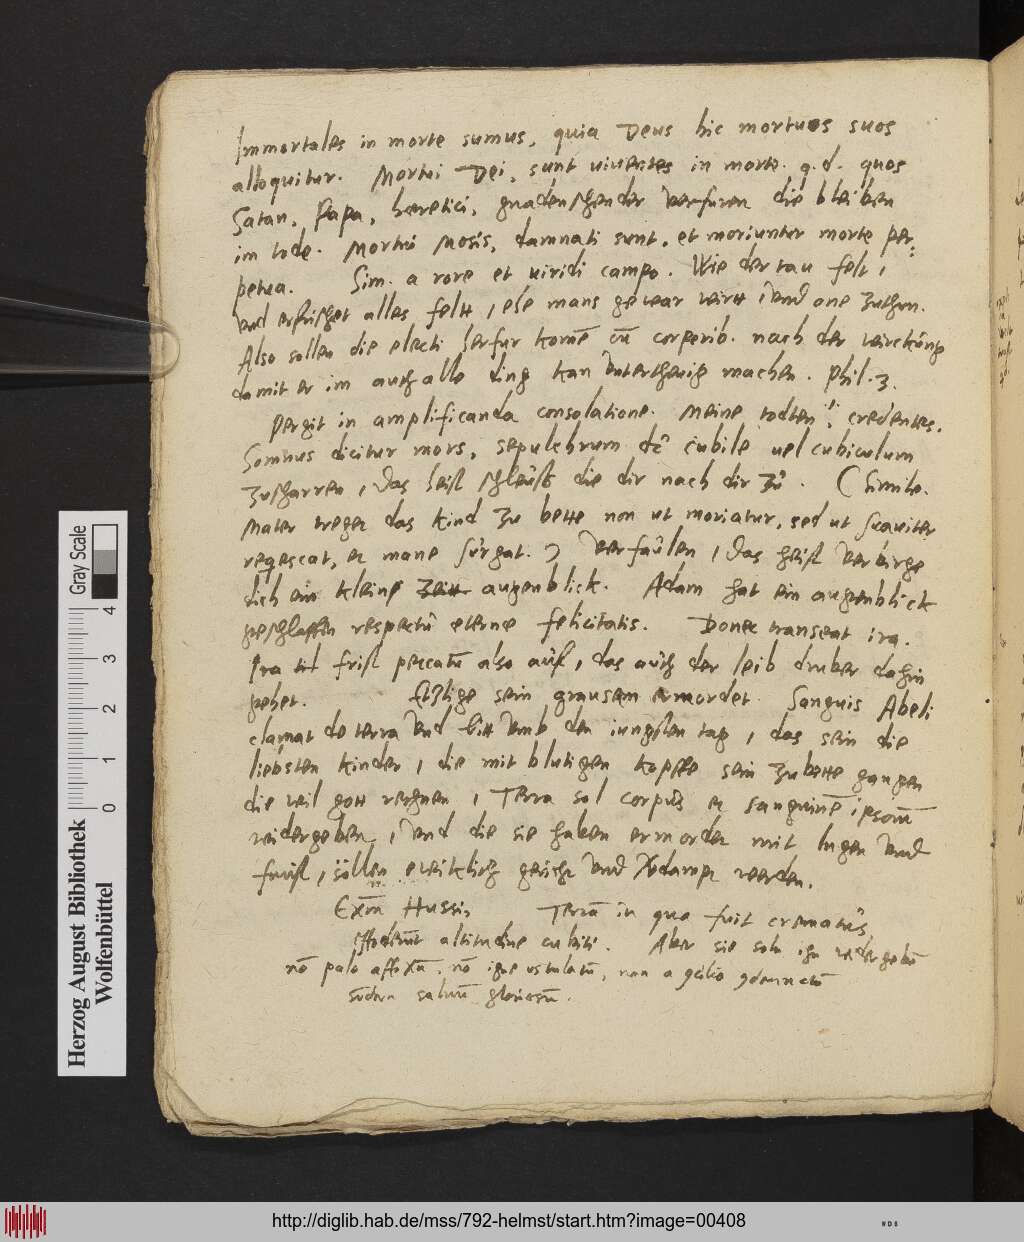 Immortales in morte sumus, quia Deus hic mortuos suos
alloquitur. Mortui Dei, sunt uiuentes in morte. q.d. quos
Satan, Papa, haeretici, gnadenschender verfuren die bleiben
im tode. Mortui Mosis, damnati sunt, et moriuntur morte per:
petua. Sim. a rore et uiridi campo. Wie der tau felt,
und erfrischet alles felt, ehe mans gewar wirtt, und one zuthun.
Also sollen die electi herfur kome cū corporib. nach der wirckūng
damit er im auch alle ding kan unterthenig machen. Phil. 3.
Pergit in amplificanda consolatione. Meine todten, i. credentes.
Somnus dicitur mors, sepulchrum cubile uel cubiculum
zuscharren, das heist schleuss die dir nach dir zu. (Simile.
Mater treget das kind zu bette non ut moriatur, sed ut suauiter
reqescat, et mane surgat.) Verfaulen, das heist verbirge
dich ein kleine zeitt augenblick. Adam hat ein augenblick
geschlaffen respectū eterne felicitatis. Donec transeat ira.
Ira frist peccatū also auff, das auch der leib druber dahin
gehet. Etzlige sein grausam ermordet. Sanguis Abeli
clamat de terra und bitt umb den iungsten tag, das sein die
liebsten kinder, die mit blutigen kopffe sein zu bette gangen
die wil gott rechnen, Terra sol corpus et sanguinē ipsorū
widergeben, und die sie haben ermordet mit lugen und
, sollen ewiklich gericht und werden.
Exm Hussi, Terrā in qua fuit crematus,
altitudine cubiti. Aber sie soln ihn widergebē
nō palo affixū, nō igne ustulatū, non a cōcilio cōdemnatū
saluū gloriosū.
Herzog August Bibliothek
Wolfenbüttel
Gray Scale
0 1 2 3 4
http://diglib.hab.de/mss/792-helmst/start.htm?image=00408